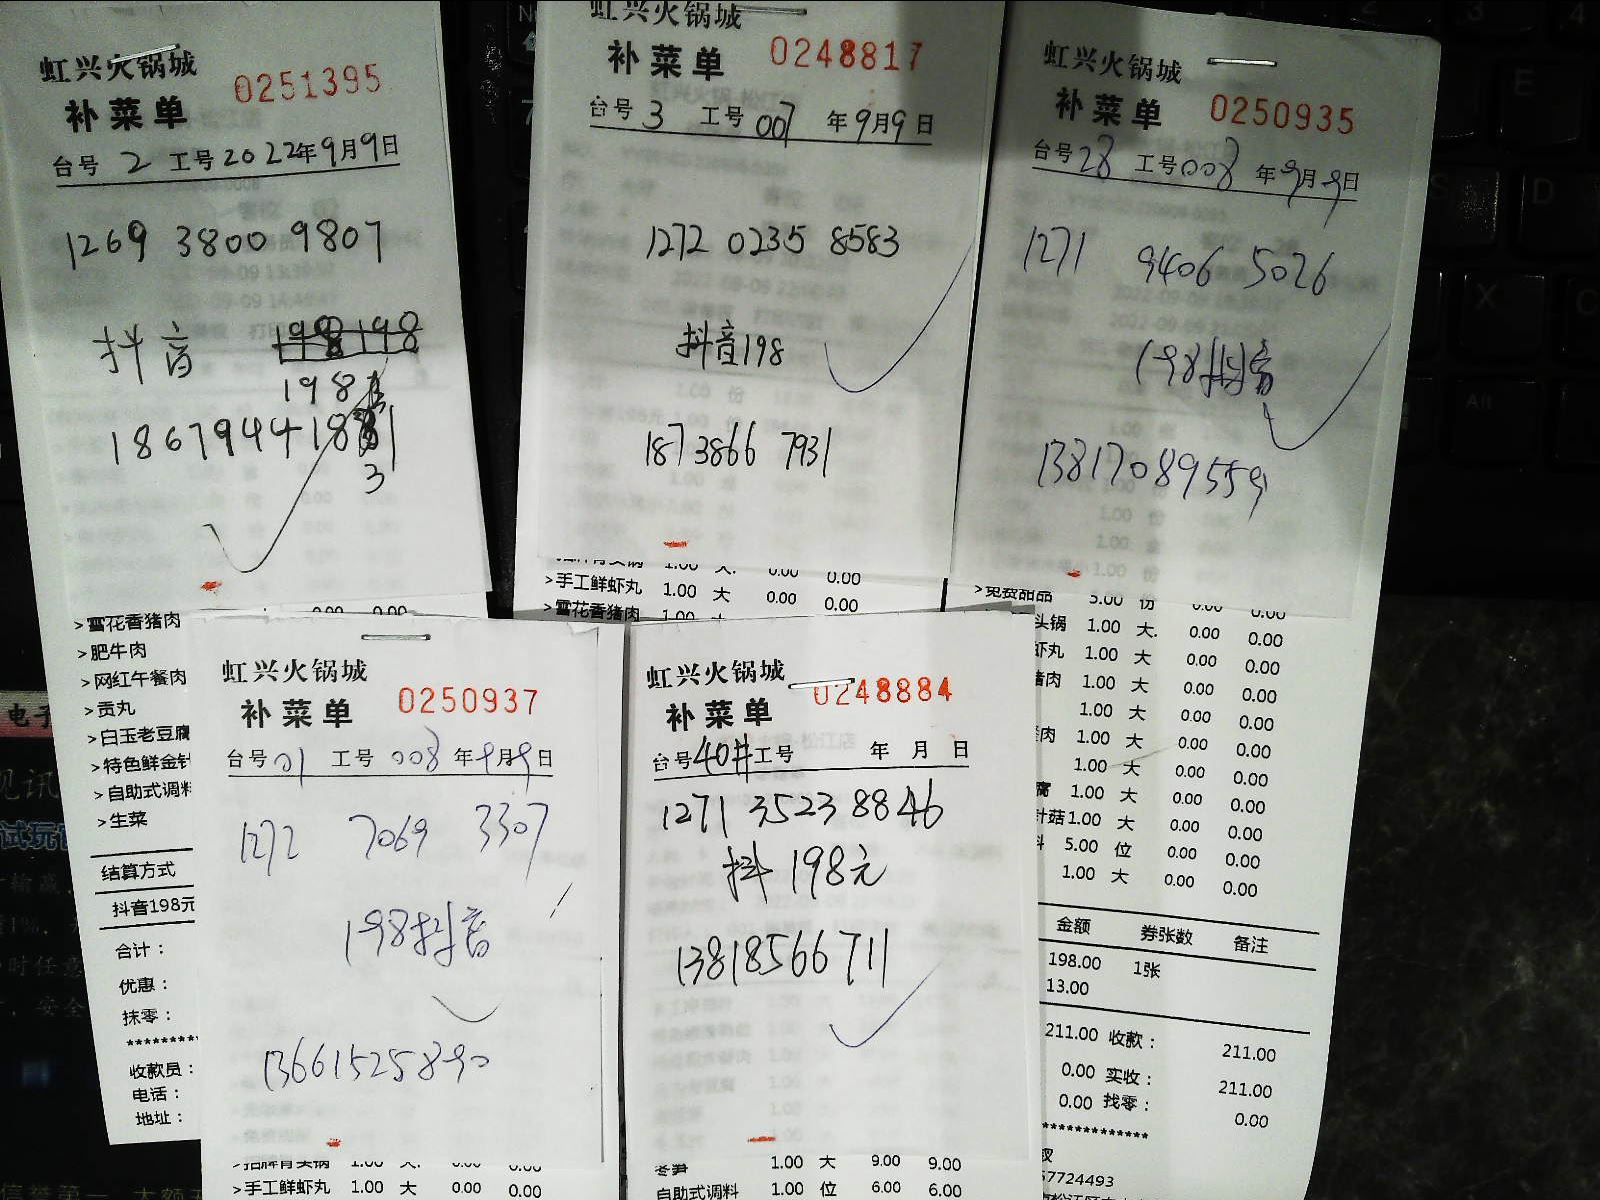 虹兴火锅城
补菜单 0251395
台号 2 工号 2022年9月9日
1269 3800 9807
抖音
198
3
>雪花香猪肉
>肥牛肉
>网红午餐肉
>贡丸
>白玉老豆腐
>特色鲜金针
>自助式调料
>生菜
结算方式
抖音198元
合计：
优惠：
抹零：
收款员：
电话：
地址：
虹兴火锅城
补菜单 0248817
台号 3 工号 007 年9月9日
1272 0235 8583
抖音198
1873866 7931
>手工鲜虾丸 1.00 大 0.00 0.00
>雪花香猪肉 1.00 大
虹兴火锅城
补菜单 0250935
台号 28 工号 008 年9月9日
1271 9406 5026
198抖音
13817089559
>免费甜品 5.00 份 0.00 0.00
头锅 1.00 大. 0.00 0.00
虾丸 1.00 大 0.00 0.00
猪肉 1.00 大 0.00 0.00
1.00 大 0.00 0.00
肉 1.00 大 0.00 0.00
1.00 大 0.00 0.00
腐 1.00 大 0.00 0.00
针菇 1.00 大 0.00 0.00
料 5.00 位 0.00 0.00
1.00 大 0.00 0.00
金额 券张数 备注
198.00 1张
13.00
211.00 收款： 211.00
0.00 实收： 211.00
0.00 找零： 0.00
57724493
虹兴火锅城
补菜单 0250937
台号 01 工号 008 年9月9日
1272 7069 3307
198抖音
13661525890
>招牌骨头锅 1.00 大. 0.00 0.00
>手工鲜虾丸 1.00 大 0.00 0.00
虹兴火锅城
补菜单 0248884
台号 40# 工号 年 月 日
1271 3523 8846
抖 198元
13818566711
冬笋 1.00 大 9.00 9.00
自助式调料 1.00 位 6.00 6.00